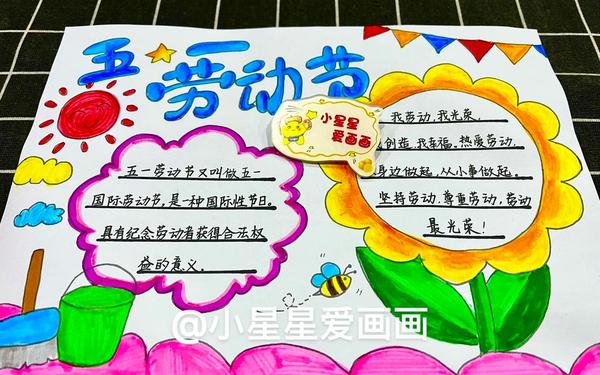 五一劳动节
小星星
爱画画
五一劳动节又叫做五一
国际劳动节,是一种国际性节日。
具有纪念劳动者获得合法权
益的意义。
我劳动,我光荣,
创造,我幸福。热爱劳动,
身边做起,从小事做起。
坚持劳动,尊重劳动,劳动
最光荣!
@小星星爱画画